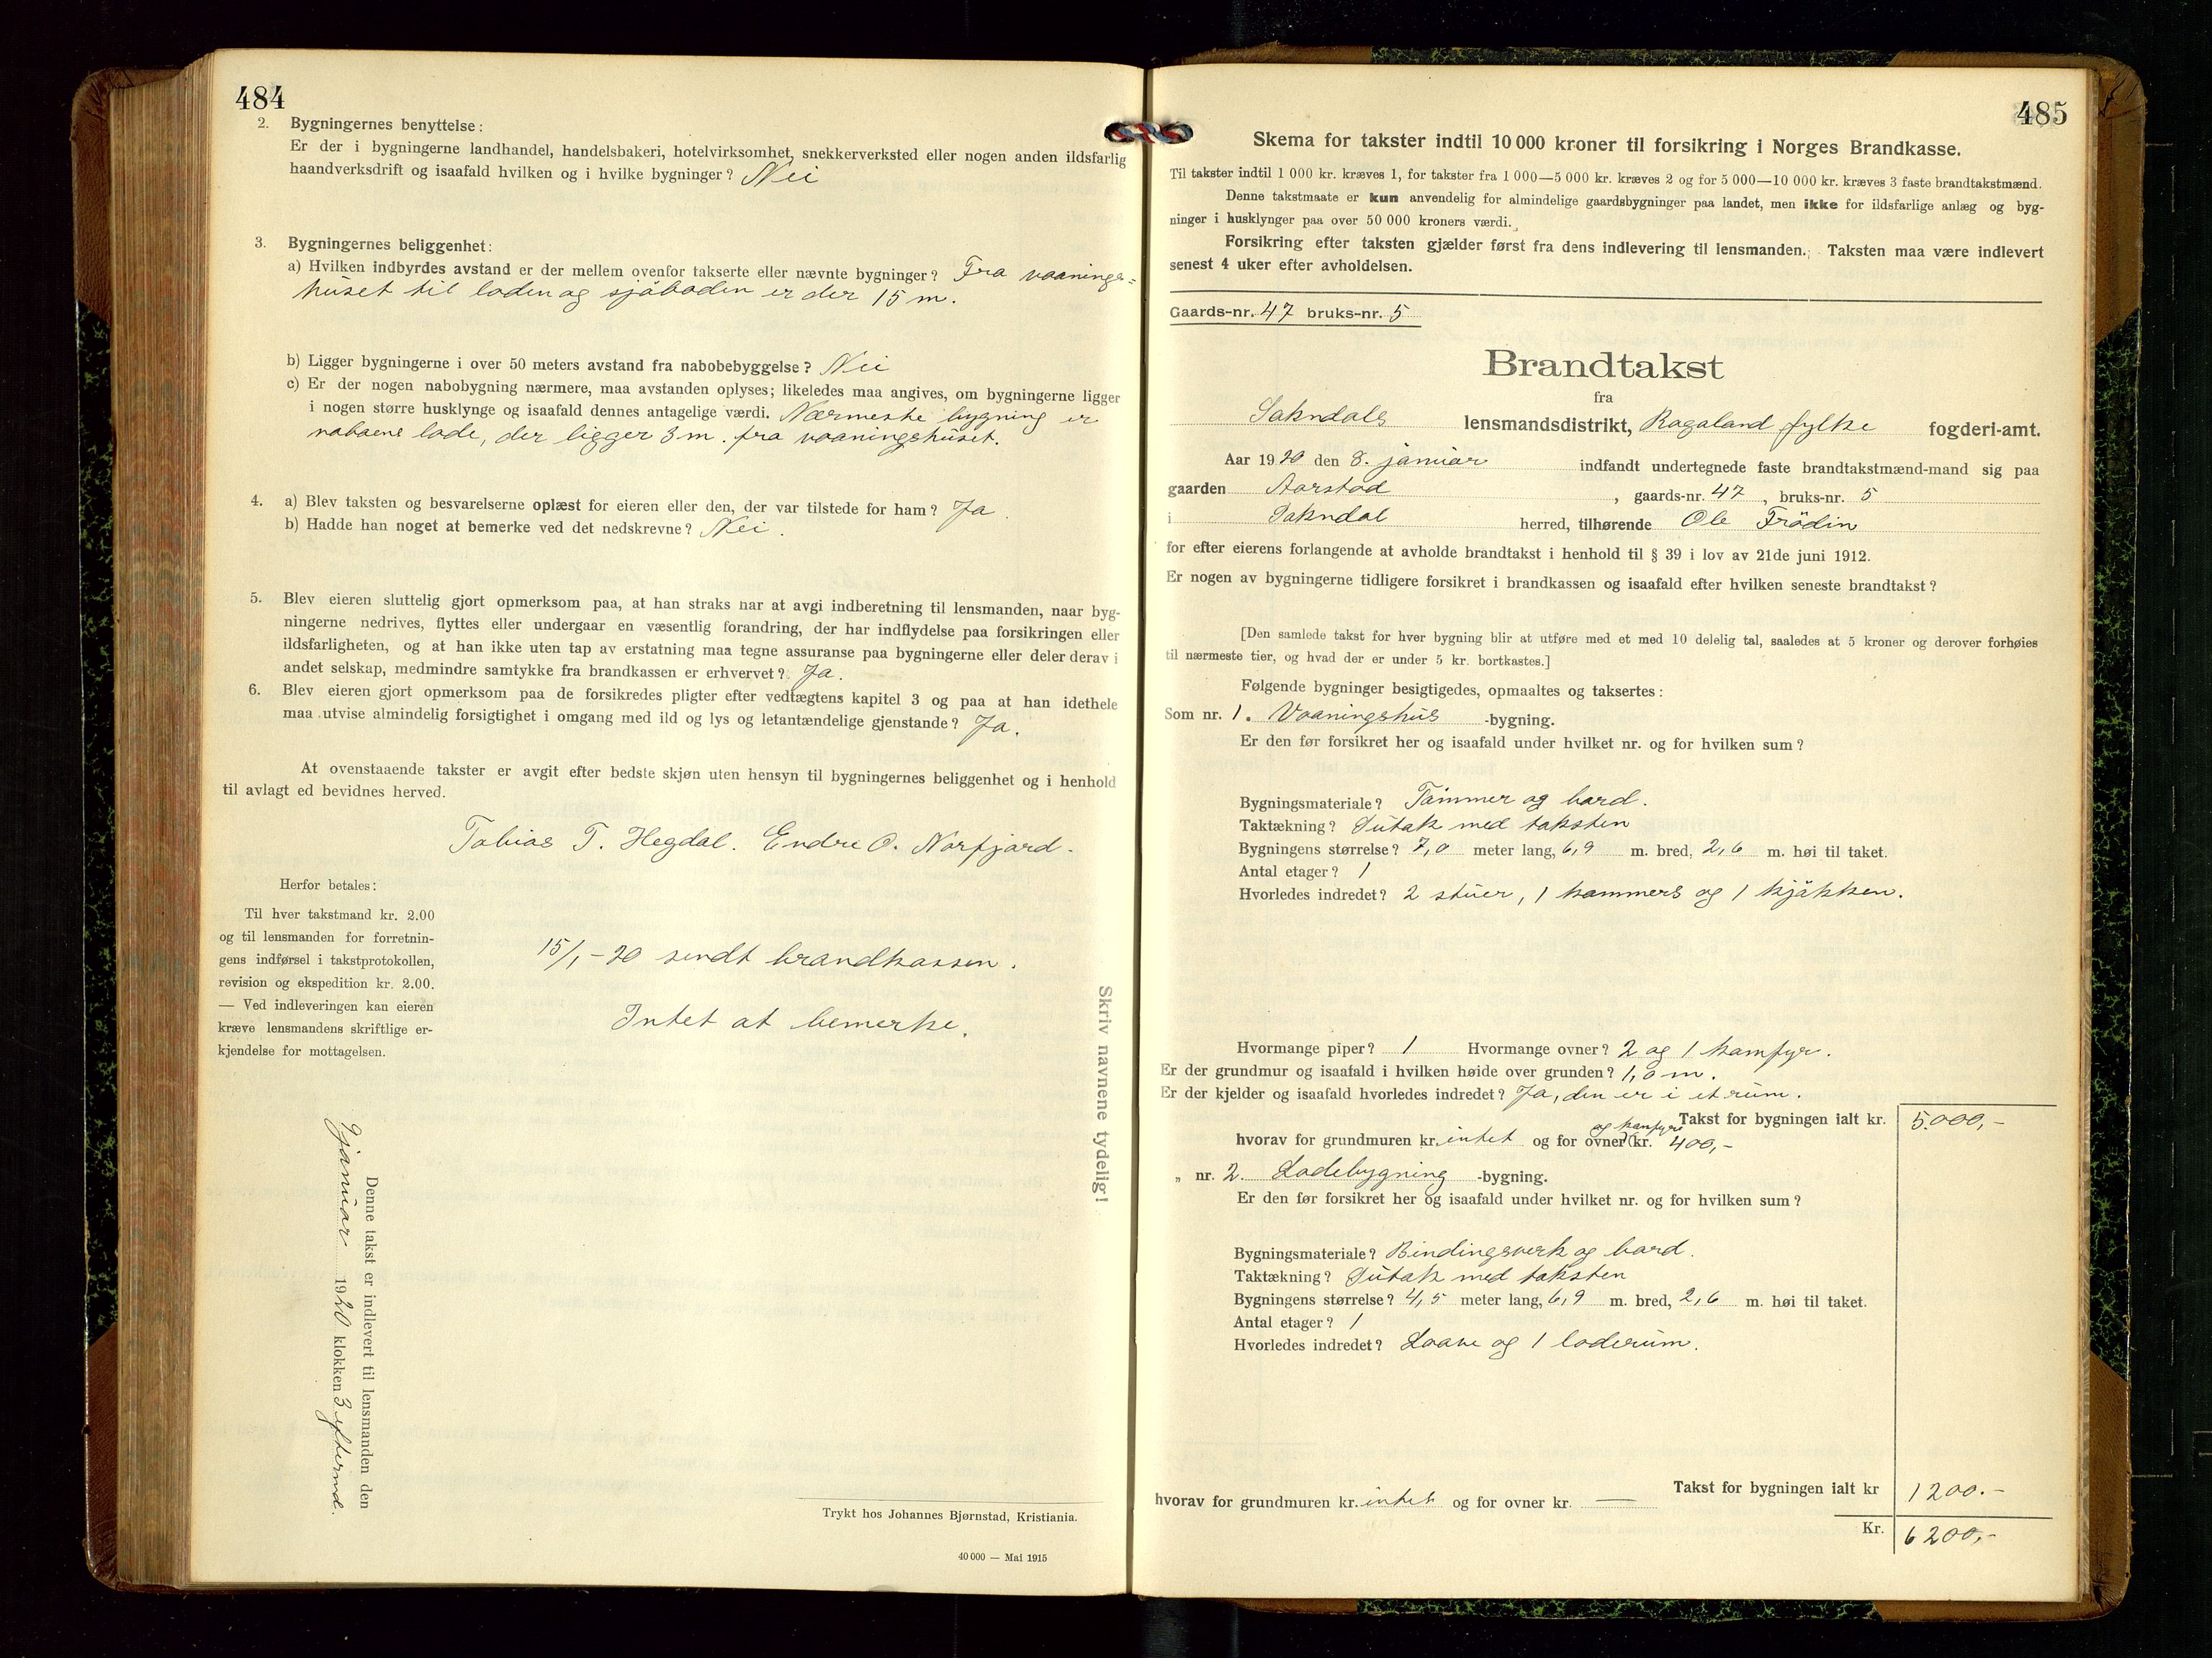 484
2. Bygningernes benyttelse:
Er der i bygningerne landhandel, handelsbakeri, hotelvirksomhet, snekkerverksted eller nogen anden ildsfarlig
haandverksdrift og isaafald hvilken og i hvilke bygninger? Nei
3. Bygningernes beliggenhet:
a) Hvilken indbyrdes avstand er der mellem ovenfor takserte eller nævnte bygninger? Fra vaanings=
huset til loden og sjøboden er der 15 m.
b) Ligger bygningerne i over 50 meters avstand fra nabobebyggelse? Nei
c) Er der nogen nabobygning nærmere, maa avstanden oplyses; likeledes maa angives, om bygningerne ligger
i nogen større husklynge og isaafald dennes antagelige værdi. Nærmeste bygning er
naboens lade, der ligger 3 m. fra vaaningshuset.
4. a) Blev taksten og besvarelserne oplæst for eieren eller den, der var tilstede for ham? Ja.
b) Hadde han noget at bemerke ved det nedskrevne? Nei.
5. Blev eieren sluttelig gjort opmerksom paa, at han straks har at avgi indberetning til lensmanden, naar byg-
ningerne nedrives, flyttes eller undergaar en væsentlig forandring, der har indflydelse paa forsikringen eller
ildsfarligheten, og at han ikke uten tap av erstatning maa tegne assuranse paa bygningerne eller deler derav i
andet selskap, medmindre samtykke fra brandkassen er erhvervet? Ja.
6. Blev eieren gjort opmerksom paa de forsikredes pligter efter vedtægtens kapitel 3 og paa at han idethele
maa utvise almindelig forsigtighet i omgang med ild og lys og letantændelige gjenstande? Ja.
At ovenstaaende takster er avgit efter bedste skjøn uten hensyn til bygningernes beliggenhet og i henhold
til avlagt ed bevidnes herved.
Tobias T. Hegdal. Endre O. Norfjord.
Herfor betales:
Til hver takstmand kr. 2.00
og til lensmanden for forretnin-
gens indførsel i takstprotokollen,
revision og ekspedition kr. 2.00.
— Ved indleveringen kan eieren
kræve lensmandens skriftlige er-
kjendelse for mottagelsen.
15/1-20 sendt brandkassen.
Intet at bemerke.
Skriv navnene tydelig!
Denne takst er indlevert til lensmanden den
9 januar 1920 klokken 3 eftermd.
Trykt hos Johannes Bjørnstad, Kristiania.
40 000 — Mai 1915
485
Skema for takster indtil 10 000 kroner til forsikring i Norges Brandkasse.
Til takster indtil 1 000 kr. kræves 1, for takster fra 1 000—5 000 kr. kræves 2 og for 5 000—10 000 kr. kræves 3 faste brandtakstmænd.
Denne takstmaate er kun anvendelig for almindelige gaardsbygninger paa landet, men ikke for ildsfarlige anlæg og byg-
ninger i husklynger paa over 50 000 kroners værdi.
Forsikring efter taksten gjælder først fra dens indlevering til lensmanden. Taksten maa være indlevert
senest 4 uker efter avholdelsen.
Gaards-nr. 47 bruks-nr. 5
Brandtakst
fra
Sokndals lensmandsdistrikt, Rogaland fylke fogderi-amt.
Aar 1920 den 8. januar indfandt undertegnede faste brandtakstmænd-mand sig paa
gaarden Aarstad, gaards-nr. 47, bruks-nr. 5
i Sokndal herred, tilhørende Ole Frödin
for efter eierens forlangende at avholde brandtakst i henhold til § 39 i lov av 21de juni 1912.
Er nogen av bygningerne tidligere forsikret i brandkassen og isaafald efter hvilken seneste brandtakst?
[Den samlede takst for hver bygning blir at utføre med et med 10 delelig tal, saaledes at 5 kroner og derover forhøies
til nærmeste tier, og hvad der er under 5 kr. bortkastes.]
Følgende bygninger besigtigedes, opmaaltes og taksertes:
Som nr. 1. Vaaningshus -bygning.
Er den før forsikret her og isaafald under hvilket nr. og for hvilken sum?
Bygningsmateriale? Tømmer og bord.
Taktækning? Sutak med taksten
Bygningens størrelse? 7,0 meter lang, 6,9 m. bred, 2,6 m. høi til taket.
Antal etager? 1
Hvorledes indredet? 2 stuer, 1 kammers og 1 kjøkken.
Hvormange piper? 1 Hvormange ovner? 2 og 1 komfyr.
Er der grundmur og isaafald i hvilken høide over grunden? 1,0 m.
Er der kjelder og isaafald hvorledes indredet? Ja, den er i et rum.
Takst for bygningen ialt kr. 5.000,-
hvorav for grundmuren kr. intet og for ovner og komfyr kr. 400,-
„ nr. 2. Ladebygning -bygning.
Er den før forsikret her og isaafald under hvilket nr. og for hvilken sum?
Bygningsmateriale? Bindingsverk og bord.
Taktækning? Sutak med taksten
Bygningens størrelse? 4,5 meter lang, 6,9 m. bred, 2,6 m. høi til taket.
Antal etager? 1
Hvorledes indredet? Laave og 1 loderum.
Takst for bygningen ialt kr 1200.-
hvorav for grundmuren kr. intet og for ovner kr. —
Kr. 6200,-